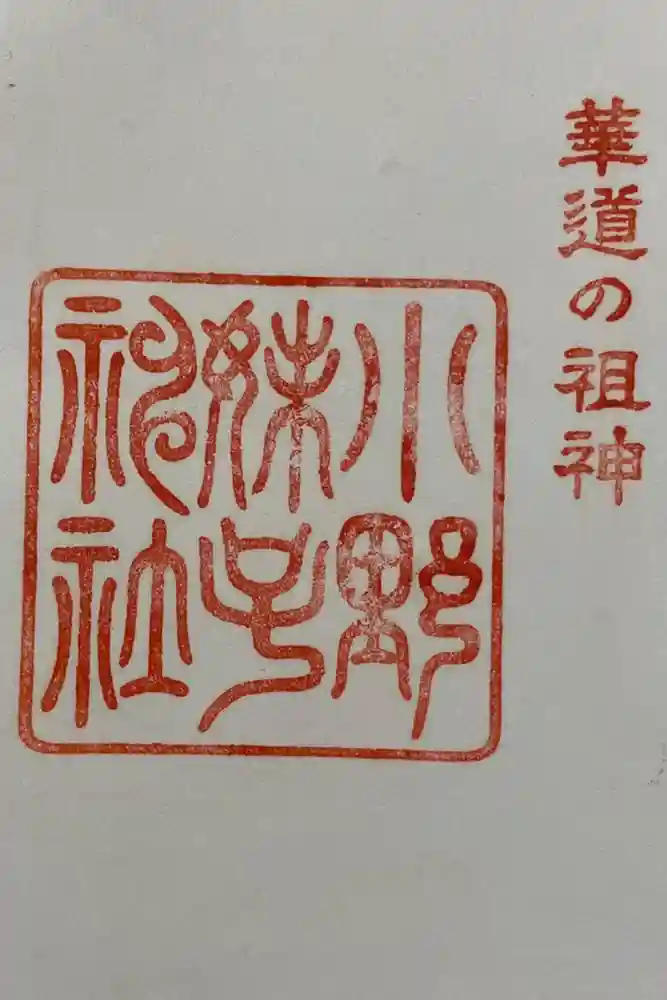 華道の祖神
小野
妹子
神社